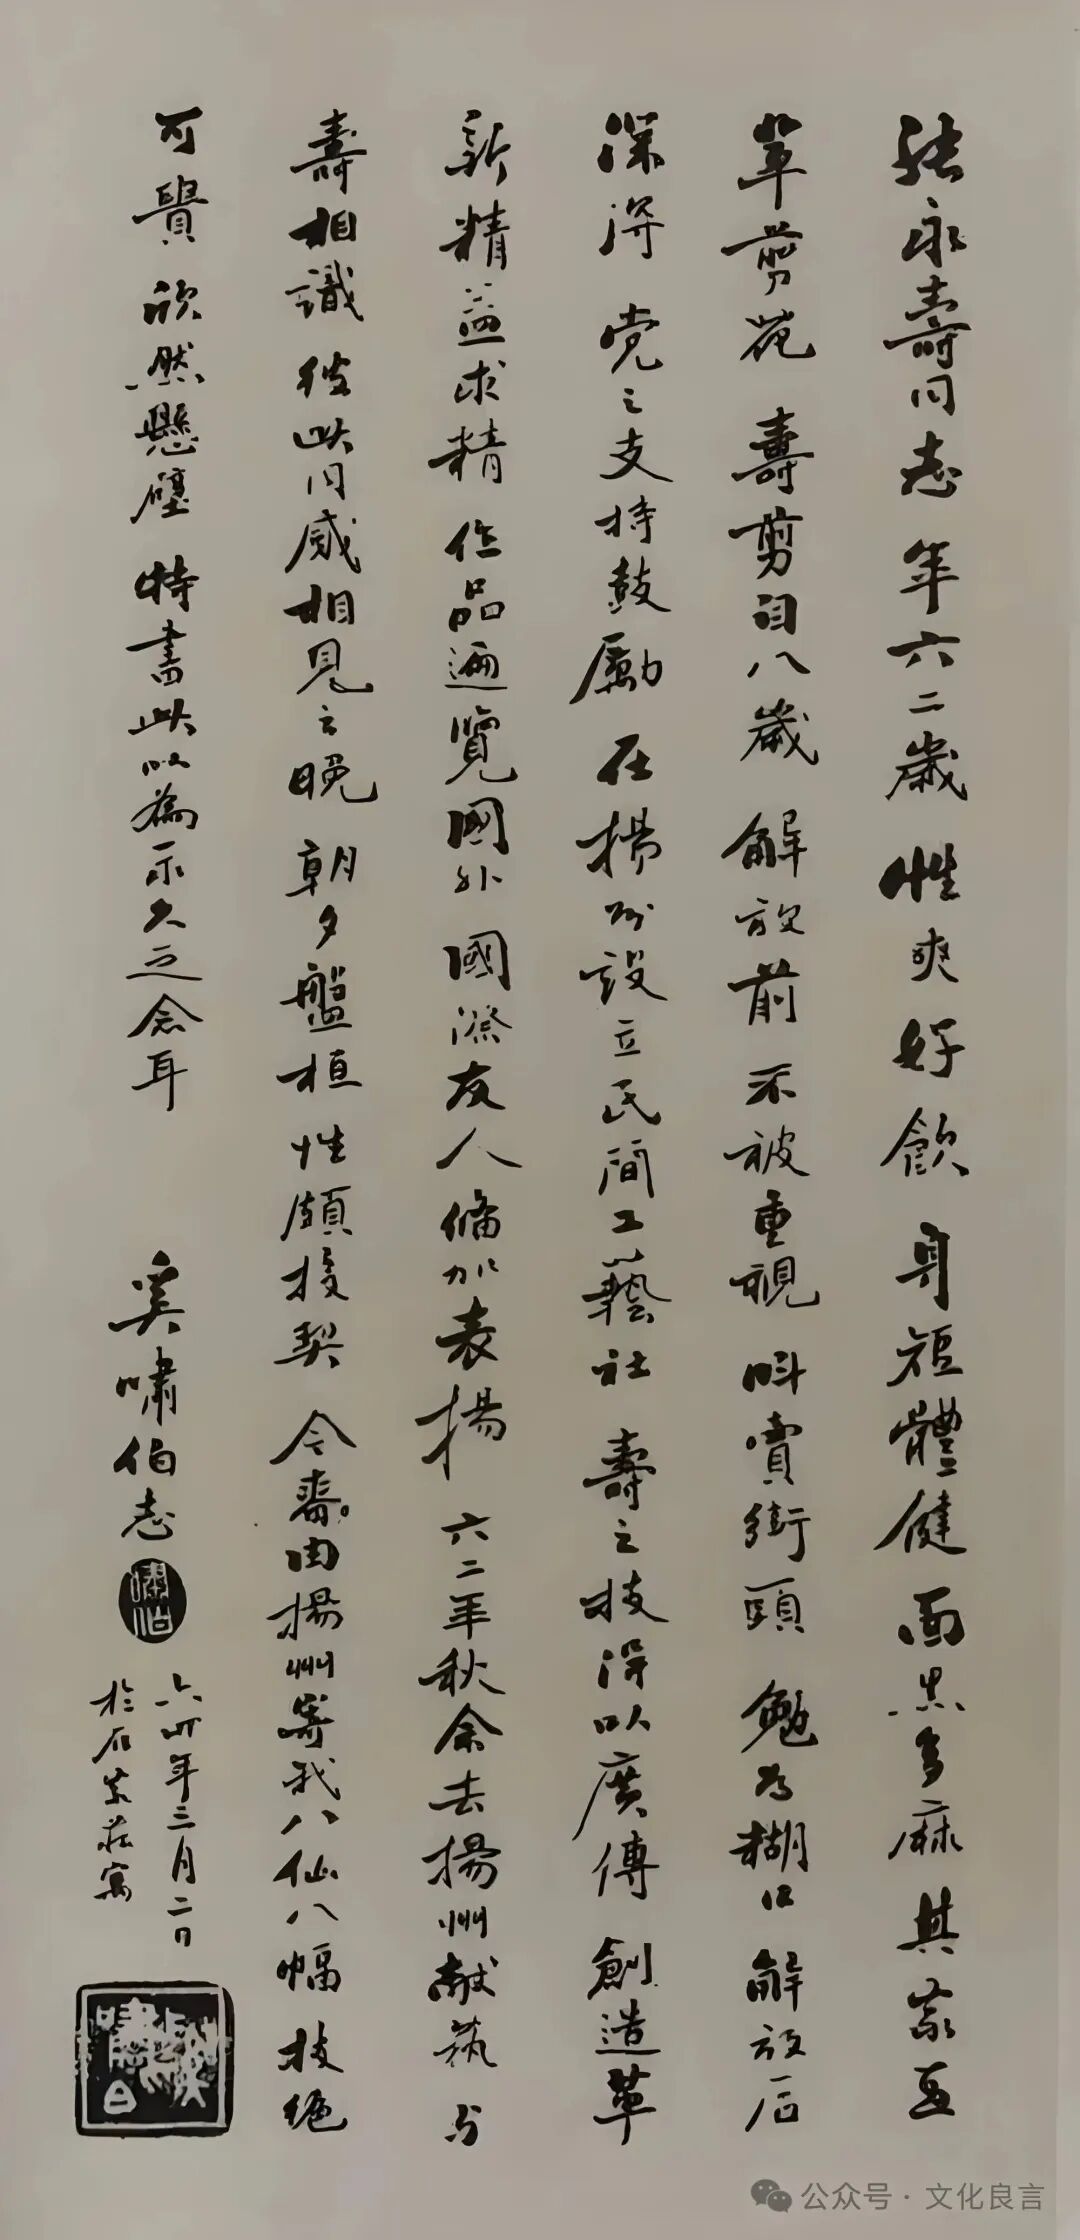 張永壽同志 年六二歲 性爽好飲 身短體健 面黑多麻 其家五
輩剪花 壽剪自八歲 解放前不被重視 叫賣街頭 勉为糊口 解放后
深得党之支持鼓勵 在揚州設立民間工藝社 壽之技得以廣傳 創造革
新精益求精 作品遍覽國外 國際友人備加表揚 六二年秋余去揚州献艺与
壽相識 彼此同感相見之晚 朝夕盤桓 性頗投契 今春由揚州寄我八仙八幅 技絕
可貴 欣然懸壁 特書此以為永久之念耳
奚嘯伯志
嘯伯
六四年三月二日
於石家莊寓
公众号·文化良言